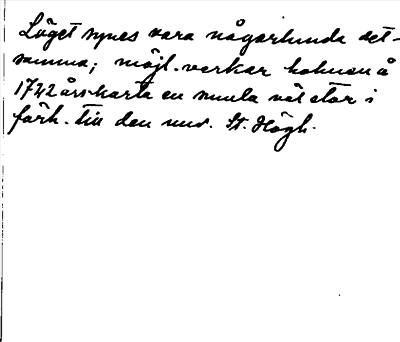 Läget synes vara någorlunda det-
samma; möjl. verkar holmen å
1742 års karta en smula väl stor i
förh. till den nuv. St. Högh.